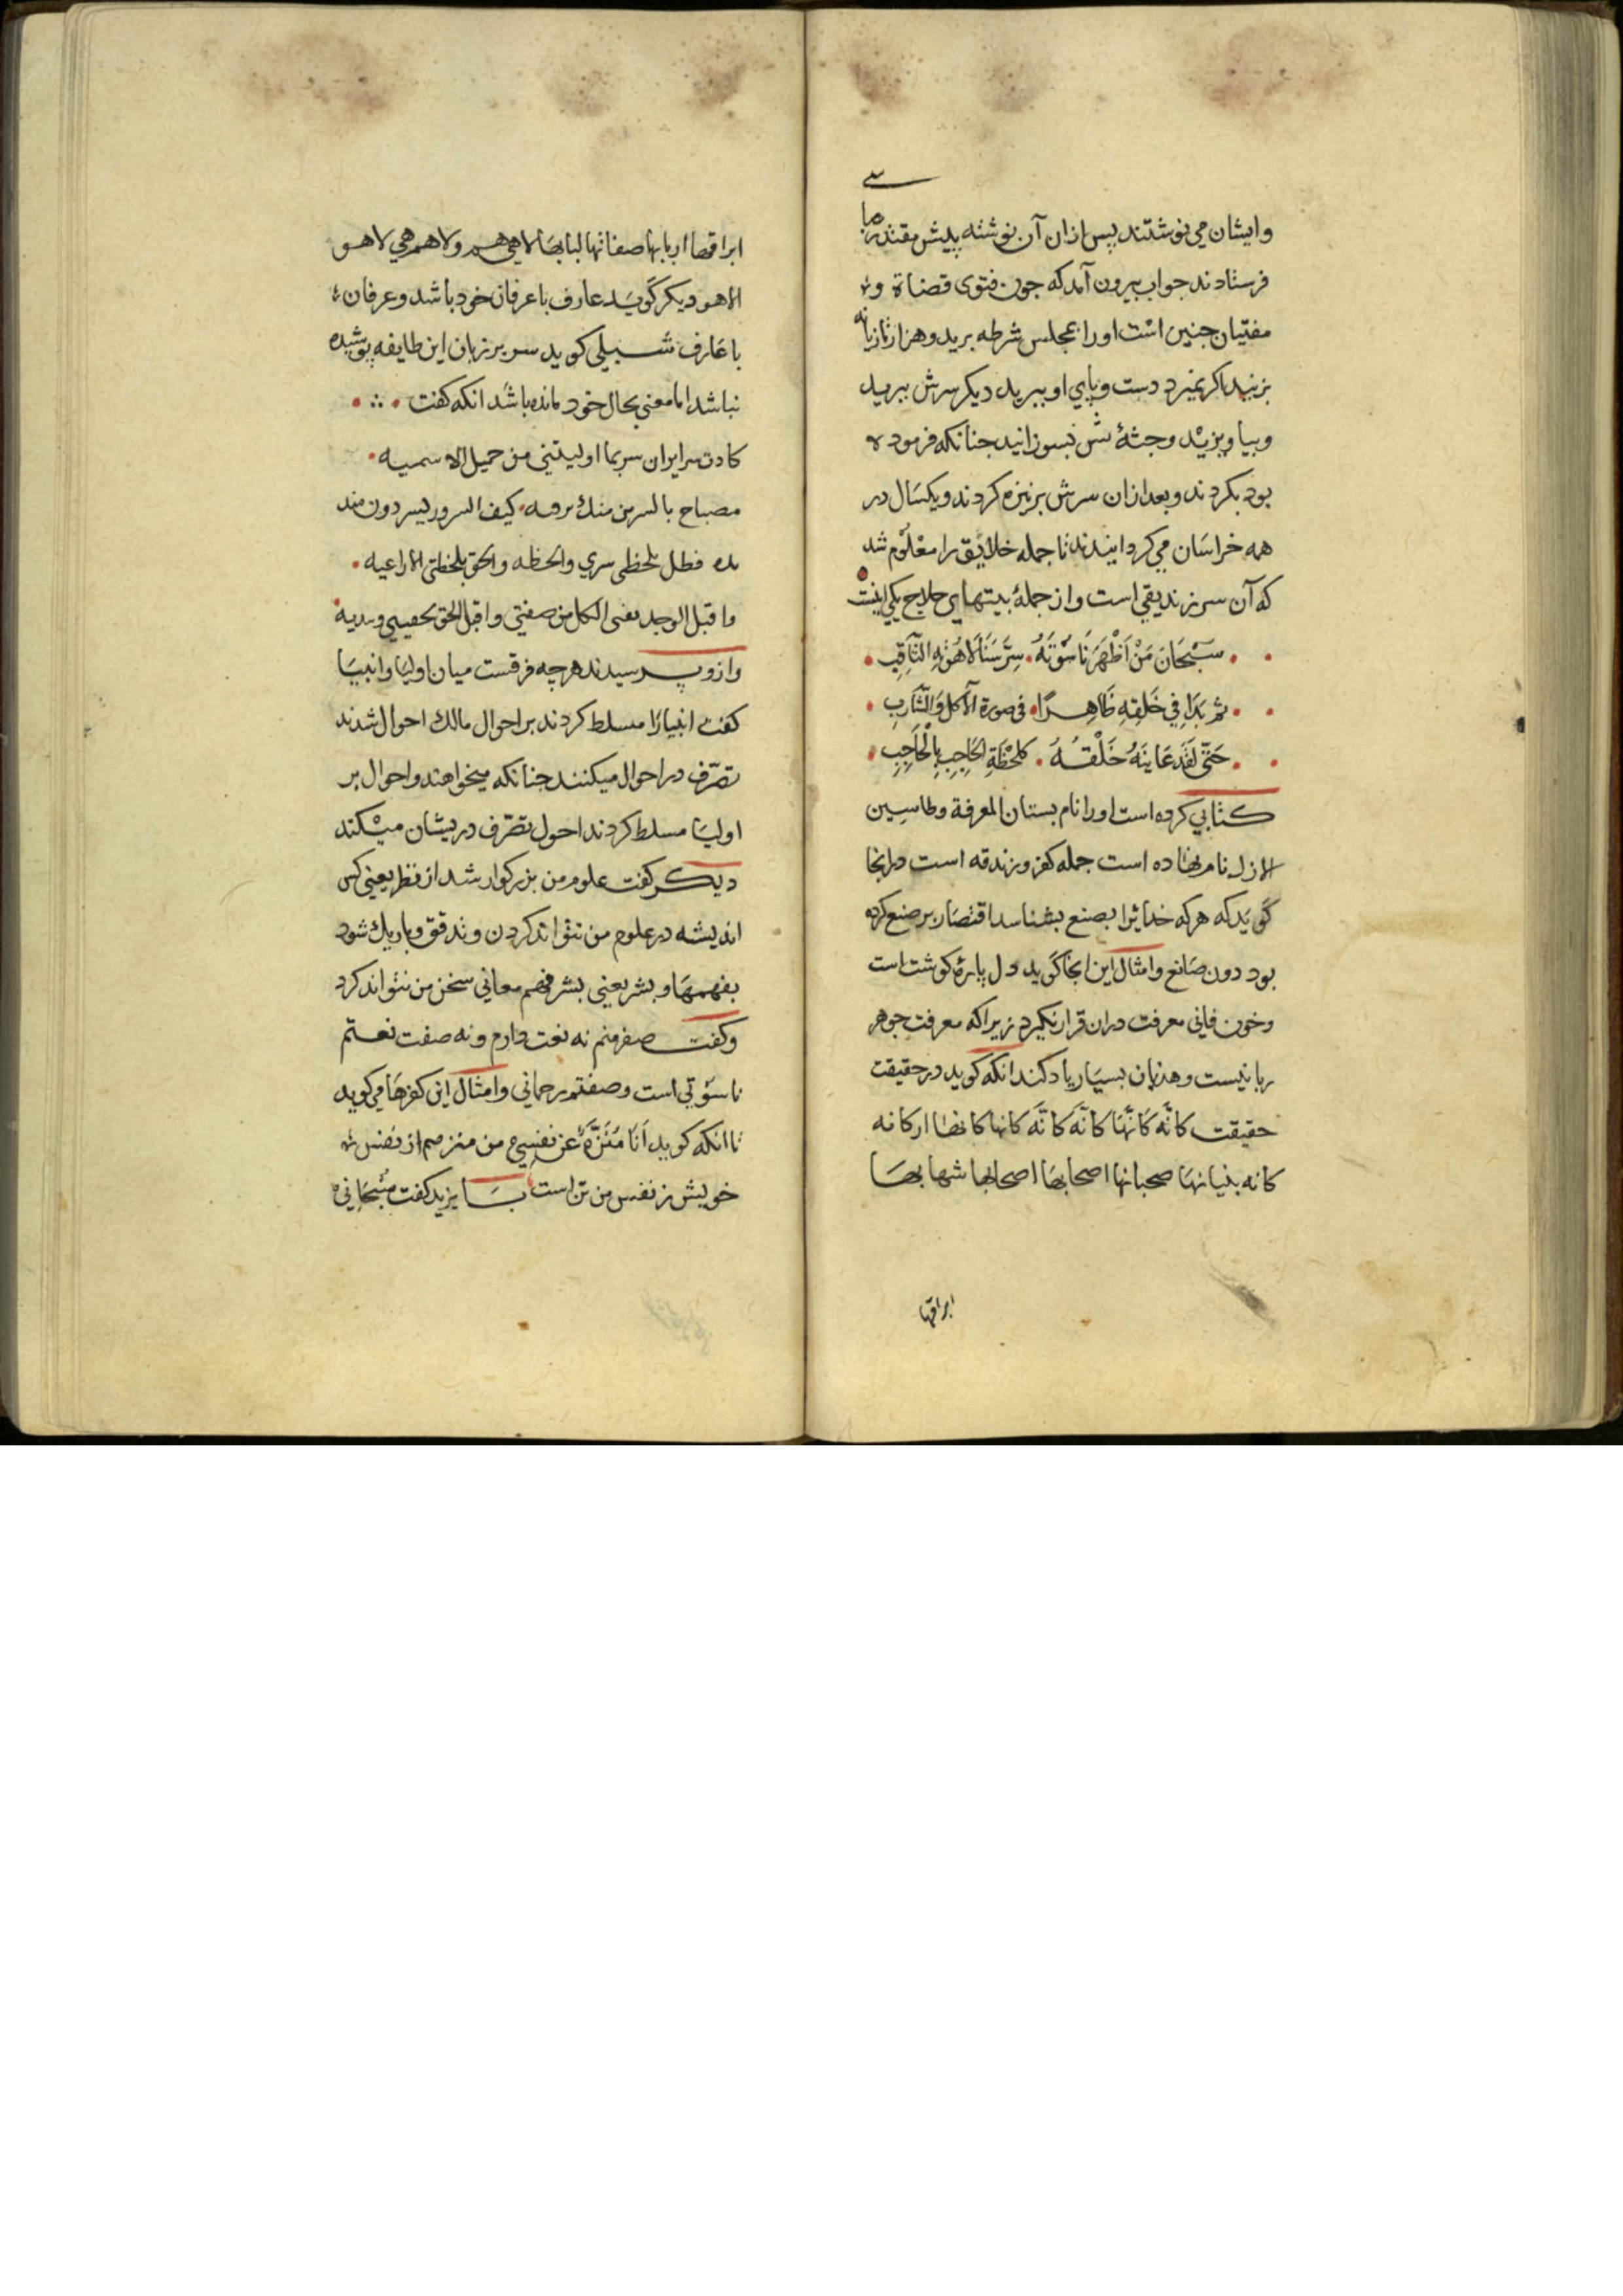 وایشان می نوشتند پس ازان آن نوشته پیش مقتدر ما
فرستادند جواب بیرون آمد که جون فتوی قضاة و
مفتیان جنین است اورا بمجلس شرطه برید و هزار تازیانه
بزنید اکر نمیرد دست و پای او ببرید دیکر سرش ببرید
وبیاویزید وجثهٔ تش بسوزانید جنانکه فرموده
بود بکردند و بعد ازان سرش بر نیزه کردند و یکسال در
همه خراسان می کردانیدند تا جمله خلایق را معلوم شد
که آن سر زندیقی است واز جملهٔ بیتهای حلاج یکی اینست
سُبْحَانَ مَنْ اَظْهَرَ نَاسُوْتَهُ سِرَّ سَنَا لَاهُوْتِهِ الثَّاقِبِ
ثم بَدَا فِي خَلقِهِ ظَاهِرًا فی صورة الآكل وَالشَّارِبِ
حَتّى لَقَد عَايَنَهُ خَلْقُهُ كلحْظَةِ الحَاجِبِ بِالْحَاجِبِ
کتابی کرده است اورا نام بستان المعرفة وطاسین
الازل نام نهاده است جمله کفر و زندقه است درانجا
کوید که هرکه خدایرا بصنع بشناسد اقتصار بر صنع کرده
بود دون صانع وامثال این انجا کوید دل پارهٔ کوشت است
وخون فانی معرفت دران قرار نکیرد زیرا که معرفت جوهر
ربانیست وهذیان بسیار یاد کند انکه کوید در حقیقت
حقیقت کانّه کانّها کانّه کانّه کانها کانها ارکانه
کانه بنیانها صحبانها اصحابها اصحابها شهابها
ابراقها
ابراقها اربابها صفاتها لبابها لا هی هم ولا هم هی لا هو
الا هو دیکر کوید عارف با عرفان خود باشد وعرفان
با عارف شبلی کوید سر بر زبان این طایفه پوشیده
نباشد اما معنی بحال خود مانده باشد انکه کفت
کادت سرایر ان سر بما اولیتنی من جمیل الا سمیه
مصباح بالسر من منك کیف السرور لسر دون
فظل یلحظی سری والحظه والحق یلحظنی الا اراعیه
واقبل الوجد یفنی الکل من صفتی واقبل الحق
وازو پرسیدند هرچه فرقست میان اولیا وانبیا
کفت انبیارا مسلط کردند بر احوال مالك احوال شدند
تصرّف در احوال میکنند جنانکه میخواهند واحوال بر
اولیا مسلط کردند احول تصرّف دریشان میکند
دیکر کفت علوم من بزرکوار شد از نظر یعنی کس
اندیشه در علوم من نتواند کردن وندقق وباریك شود
بفهمها و بشر یعنی بشر فهم معانی سخن من نتواند کرد
وکفت صفر منم نه نعت دارم ونه صفت نعتم
ناسوتی است وصفتم رحمانی وامثال این کفرها می کوید
تا انکه کوید اَنَا مُنَزَّهٌ عَن نفسِی من منزهم از نفس
خویش ز نفس من تن است بایزید کفت سُبْحَانی